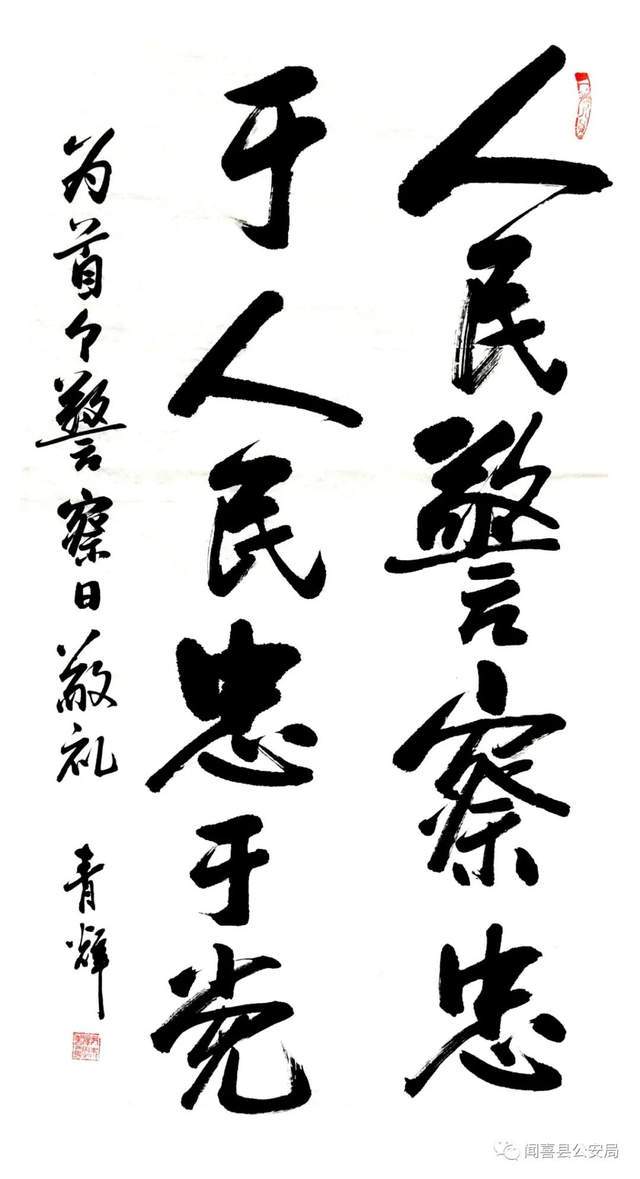 人民警察忠
于人民忠于党
为首个警察日敬礼
青辉
闻喜县公安局